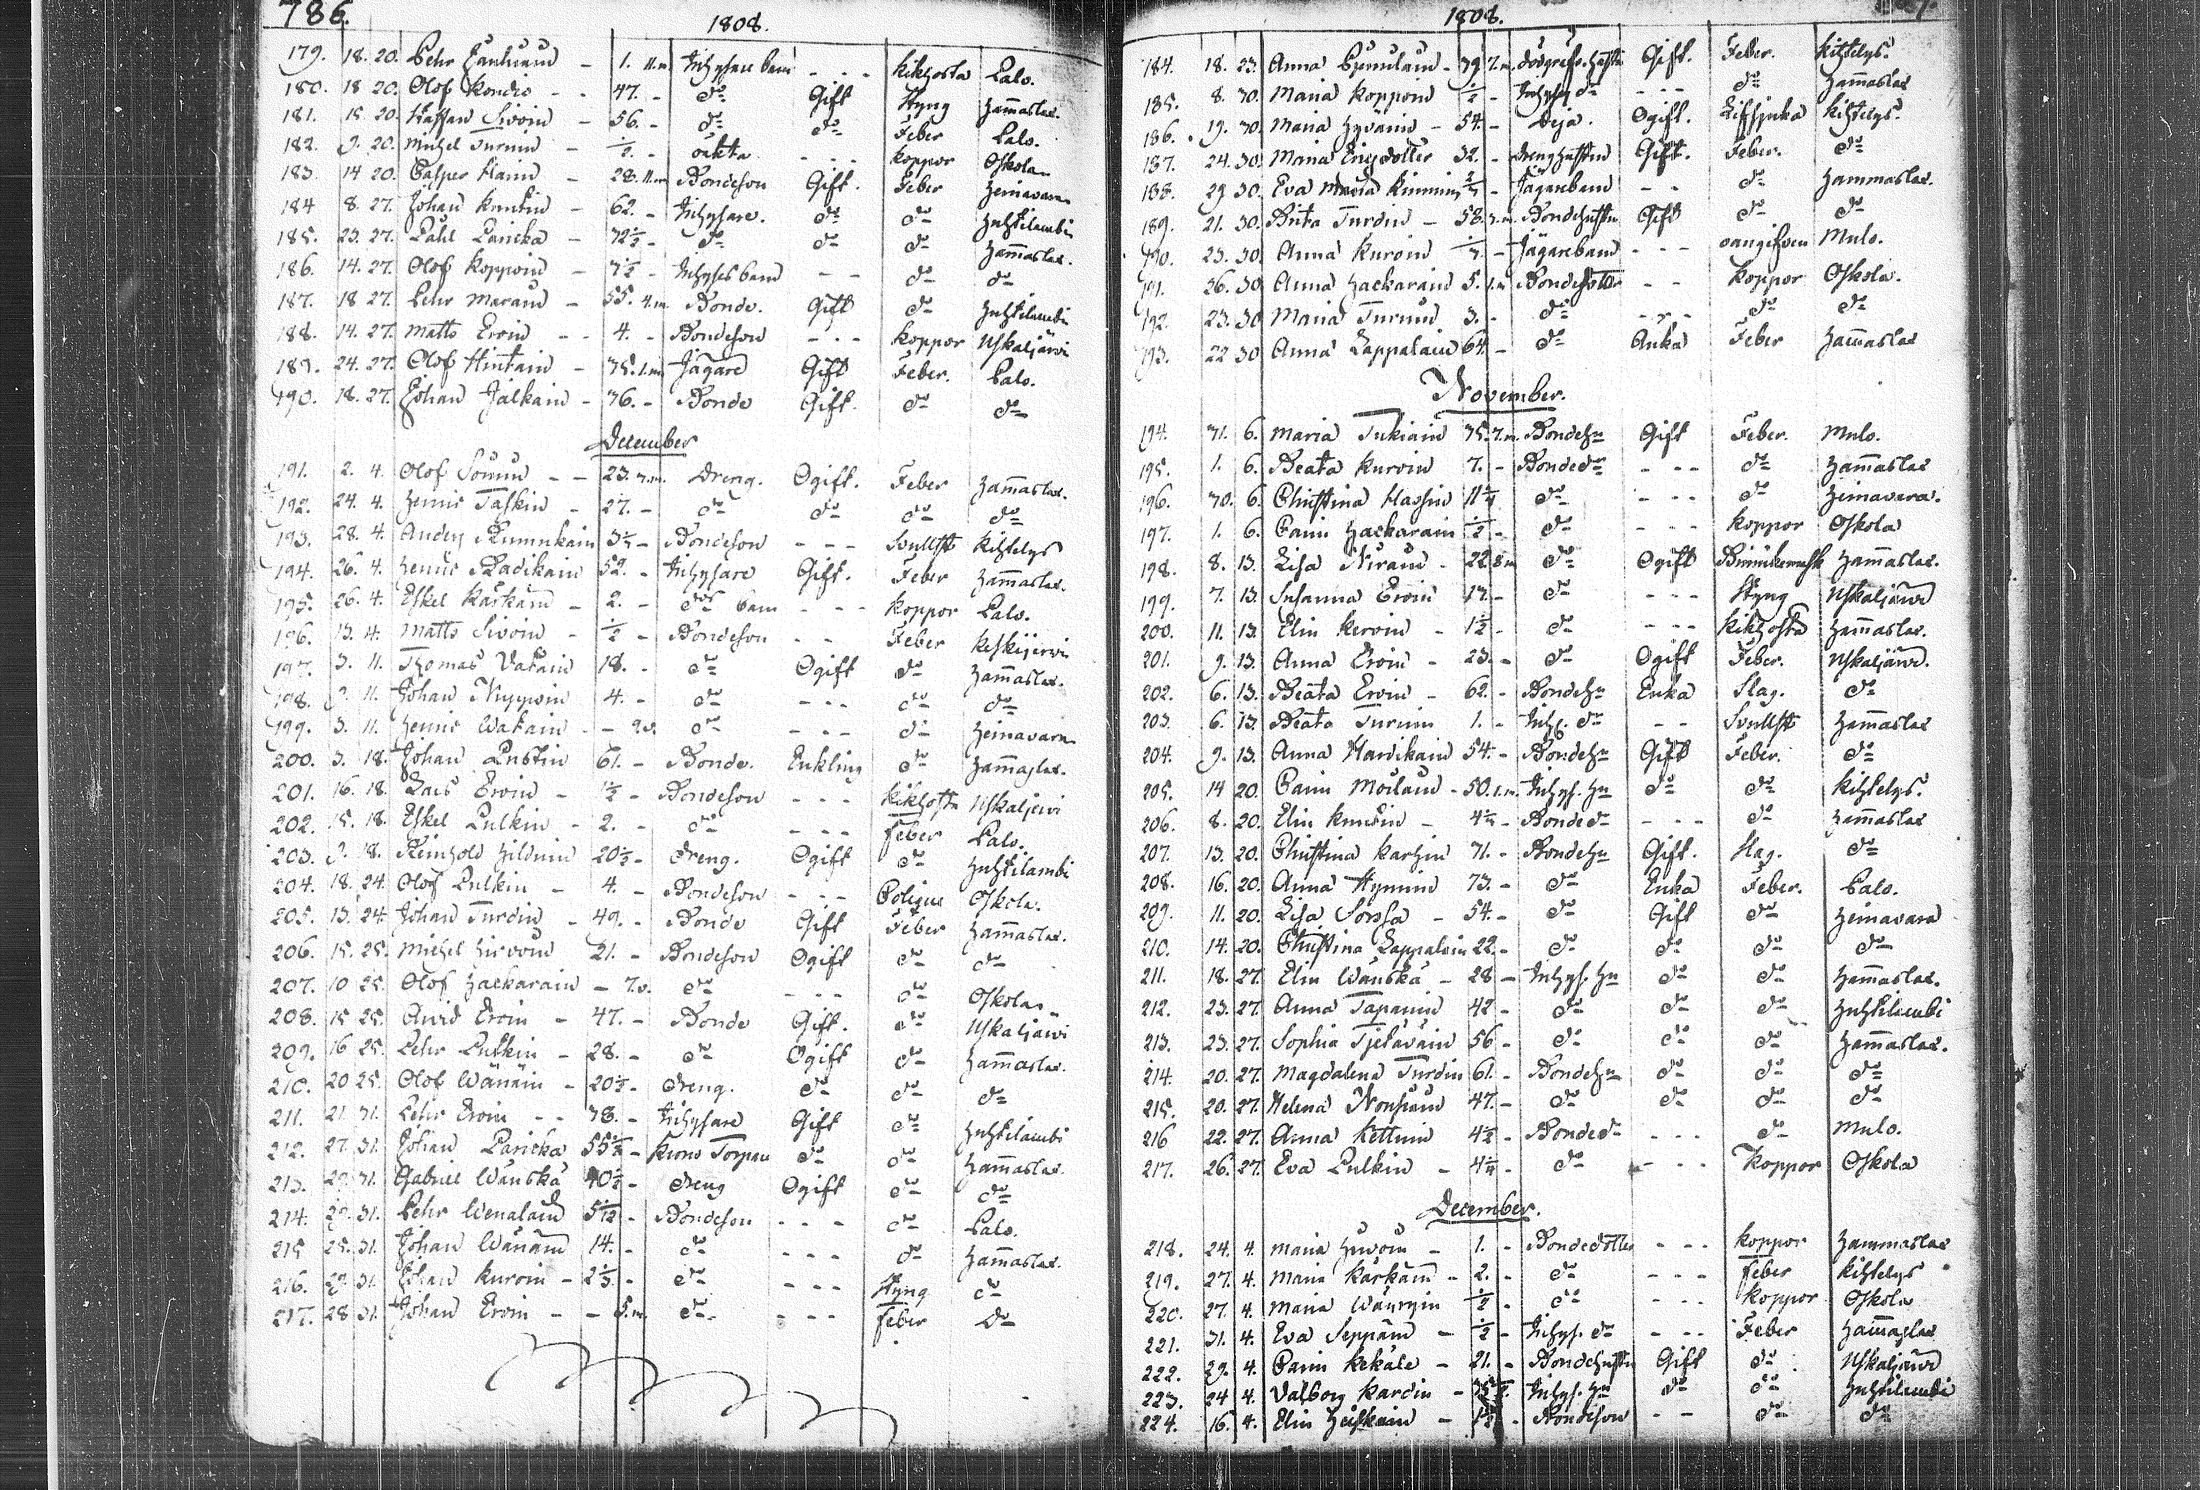 786.
1808.
179. 18. 20. Pehr - 1. 11.m Inhysare barn - - - Kikhosta Palo.
180. 18 20. Olof Kondie - - 47. - do Gift Styng Hammaslax.
181. 15. 20. Staffan Sivoin - 56. - do do Feber Palo.
182. 9. 20. Michel Turuin - ½. - oäkta - - - Koppor Oskola
183. 14 20. Casper Hain - 28. 11.m Bondeson Gift. Feber Heinavara
184 8. 27. Johan Knutin - 62. - Inhysare. do do Huhtilambi
185. 23. 27. Påhl Laricka - 72½ - do do do Hammaslax.
186. 14. 27. Olof Koppoin - 7½ - Inhyses barn - - do do
187. 18 27. Pehr Marain - 55. 4.m Bonde. Gift do Huhtilambi
188. 14. 27. Matts Ervin - - 4. - Bondeson - - - Koppor Uskaljärvi
189. 24. 27. Olof Hintain - 75. 1.m Jägare Gift Feber. Palo.
190. 18. 27. Johan Jalkain - 76. - Bonde Gift. do do
December
191. 2. 4. Olof - - 23. 7.m. Dreng. Ogift. Feber Hammaslax.
192. 24. 4. Henric Taskin - 27. - do do do do
193. 28. 4. Anders Rummukain - Bondeson - - - Svullst Kihtelys
194. 26. 4. Henric Radikain 52. - Inhysare Gift. Feber Hammaslax.
195. 26. 4. Eskel Kärkäin - 2. - dos barn - - - Koppor Palo.
196. 13. 4. Matts Sivoin - ½ - Bondeson - - Feber Keskijervi
197. 3. 11. Thomas Vatain 18. - do Ogift do Hammaslax.
198. 9. 11. Johan 4. - do - - - do do
199. 3. 11. Henric Watain - - 2.v. do - - - do Heinavara
200. 3. 18. Johan Pustin 61. - Bonde. Enkling do Hammaslax.
201. 16. 18. Lars Ervin - 1½ - Bondeson - - - Kikhosta Uskaljervi
202. 15. 18. Eskel Pulkin - 2. - do - - - Feber Palo.
203. 9. 18. Reinhold Hilduin 20½ - Dreng. Ogift do Huhtilambi
204. 18. 24. Olof Pulkin - 4. - Bondeson - - - Colique Oskola.
205. 13. 24. Johan Turdin - 49. - Bonde Gift Feber Hammaslax.
206. 15. 25. Michel Hirvoin 21. - Bondeson Ogift do do
207. 10 25. Olof Zackarain - 7.v. do - - - do Oskola
208. 15 25. Arvid Ervin - 47. - Bonde Gift. do Uskaljärvi
209. 16 25. Pehr Pulkin - 28. - do Ogift do Hammaslax.
210. 20 25. Olof Wänäin - 20½ - Dreng. do do do
211. 21. 31. Pehr Ervin - - 78. - Inhysare Gift do Huhtilambi
212. 27. 31. Johan Laricka 55½ - Krono Torpare do do Hammaslax.
213. 29. 31. Gabriel Wänskä 40½ - Dreng Ogift do do
214. 29. 31. Pehr Wenalain - Bondeson - - - do Palo.
215 25. 31. Johan Wänäin 14. - do - - - do Hammaslax.
216. 29. 31. Johan Kuroin - 2⅓ - do - - - Styng do
217. 28 31. Johan Ervin - - 5.m. do - - - Feber do
1808.
184. 18. 23. Anna - 79 7.m. Gift. Feber. Kihtelys.
185. 8. 30. Maria Koppoin ½ - Inhyses do - - - do Hammaslax
186. 19. 30. Maria Hyvärin - 54. - Deja. Ogift. Kihtelys.
187. 24. 30. Maria Ericsdotter 32. - Drenghustru Gift. Feber. do
188. 29 30. Eva Maria Kinnuin - Jägarebarn - - do Hammaslax.
189. 21. 30. Brita Turdin - 58. Bondehustru Gift do do
190. 23. 30. Anna Kuroin - Jägarebarn - - - oangifven Mulo.
191. 26. 30 Anna Zackarain 5. 1.m Bondedotter - - Koppor Oskola.
192. 23. 30 Maria Turuin 3. - do - - - do do
193. 22 30 Anna Lappalain 64. - do Anka Feber Hammaslax
November.
194. 31. 6. Maria Tukiain 75. 7.m. Bondehu Gift Feber. Mulo.
195. 1. 6. Beata Kurvin 7. - Bondedr - - - do Hammaslax
196. 30. 6. Christina Hassin 11¼ do - - - do Heinavara.
197. 1. 6. Carin Zackarain ½ - do - - - Koppor Oskola
198. 8. 13. Lisa Nirain - 22. 8m do Ogift Hammaslax.
199. 7. 13. Susanna Ervin 17. - do - - - Styng Uskaljärvi
200. 11. 13. Elin Kervin - 1½ - do - - - Kikhosta Hammaslax.
201. 9. 13. Anna Ervin - 23. - do Ogift Feber. Uskaljärvi.
202. 6. 13. Beata Ervin - 62. - Bondehu Enka Slag. do
203. 6. 13. Beata Turuin 1. - Inhs. dr - - Svullst Hammaslax
204. 9. 13. Anna Havikain 54. - Bondehu Gift Feber. do
205. 14 20. Carin Moilain - 50. 1.m. Inhys. hu do do Kihtelys.
206. 8. 20. Elin Knutin - 4¼ - Bondedr - - - do Hammaslax
207. 13. 20. Christina Karhin 71. - Bondehu Gift. Slag. do
208. 16. 20. Anna Hynnin 73. - do Enka Feber. Palo.
209. 11. 20. Lisa Sorsa - 54. - do Gift do Heinavara
210. 14. 20. Christina Lappalain 22. - do do do do
211. 18. 27. Elin Wänskä - 28 - Inhys. hu do do Hammaslax.
212. 23. 27. Anna Tapanin 42 - do do do Huhtilambi
213. 23. 27. Sophia Tjetäväin 56 - do do do Hammaslax.
214. 20. 27. Magdalena Turdin 61. - Bondehu do do do
215. 20. 27. Helena Nousiain 47. - do do do do
216 22. 27. Anna Kettuin 4½ - Bondedr - - - do Mulo.
217. 26. 27. Eva Pulkin - 4¼ - do - - - Koppor Oskola
December.
218. 24. 4. Maria Hirvoin - 1. - Bondedotter - - - Koppor Hammaslax
219. 27. 4. Maria Kärkäin - 2. - do - - - Feber Kihtelys
220. 27. 4. Maria ½ - do - - - Koppor Oskola
221. 31. 4. Eva Seppäin - ½ - Inhys. dr - - - Feber Hammaslax
222. 29. 4. Carin Kekäle - 21. - Bondehustru Gift do Uskaljärvi
223. 24 4. Valborg Kardin - Inhys. hu do do Huhtilambi
224. 16. 4. Elin Heiskain - - Bondeson - - do do